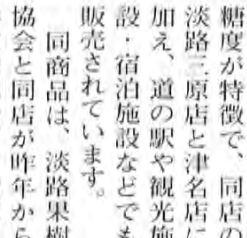 糖度が特徴で、同店の
淡路三原店と津名店に
加え、道の駅や観光施
設・宿泊施設などでも
販売されています。
同商品は、淡路果樹
協会と同店が昨年から